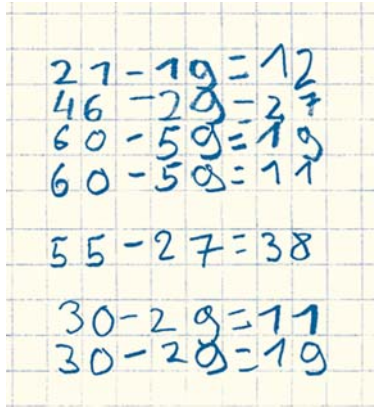 21-19=12
46-29=27
60-59=19
60-59=11
55-27=38
30-29=11
30-29=19